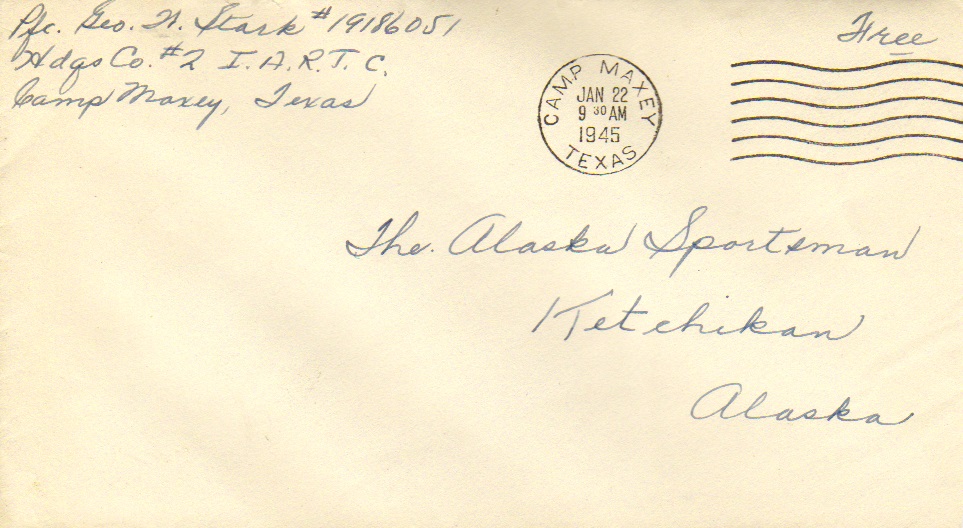 Pfc. Geo. H. Stark #19186051
Hdqs Co. #2 I.A.R.T.C.
Camp Maxey, Texas
Free
CAMP MAXEY
JAN 22
9 30 AM
1945
TEXAS
The Alaska Sportsman
Ketchikan
Alaska